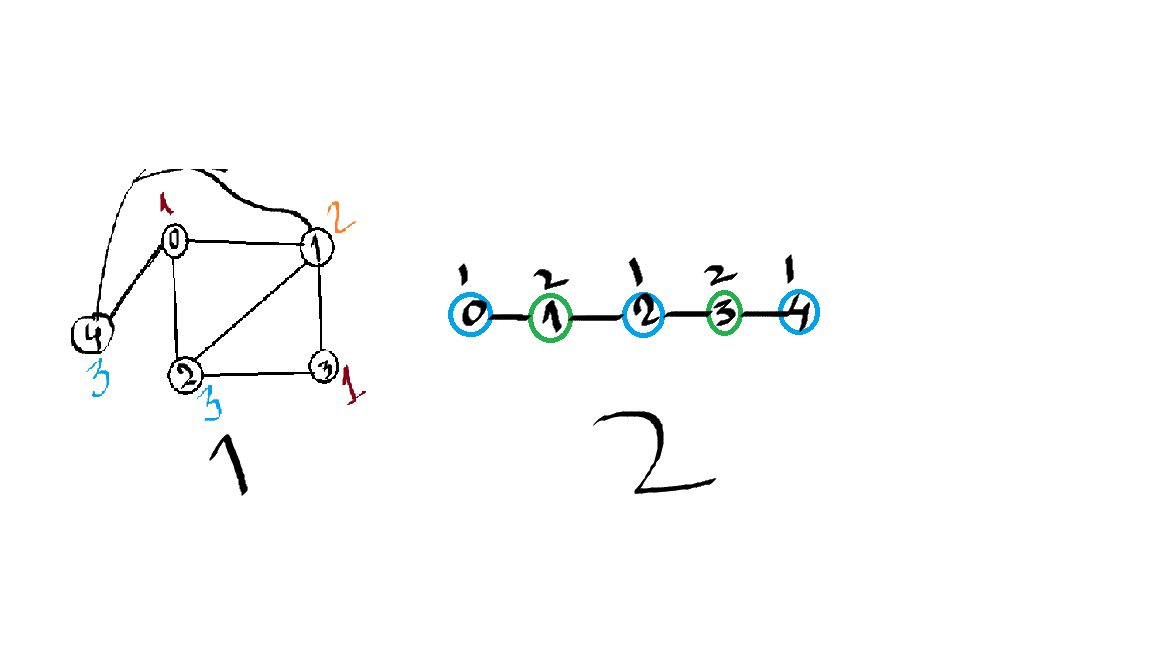 1
2
0
1
4
3
2
3
3
1
1
1 2 1 2 1
0 1 2 3 4
2